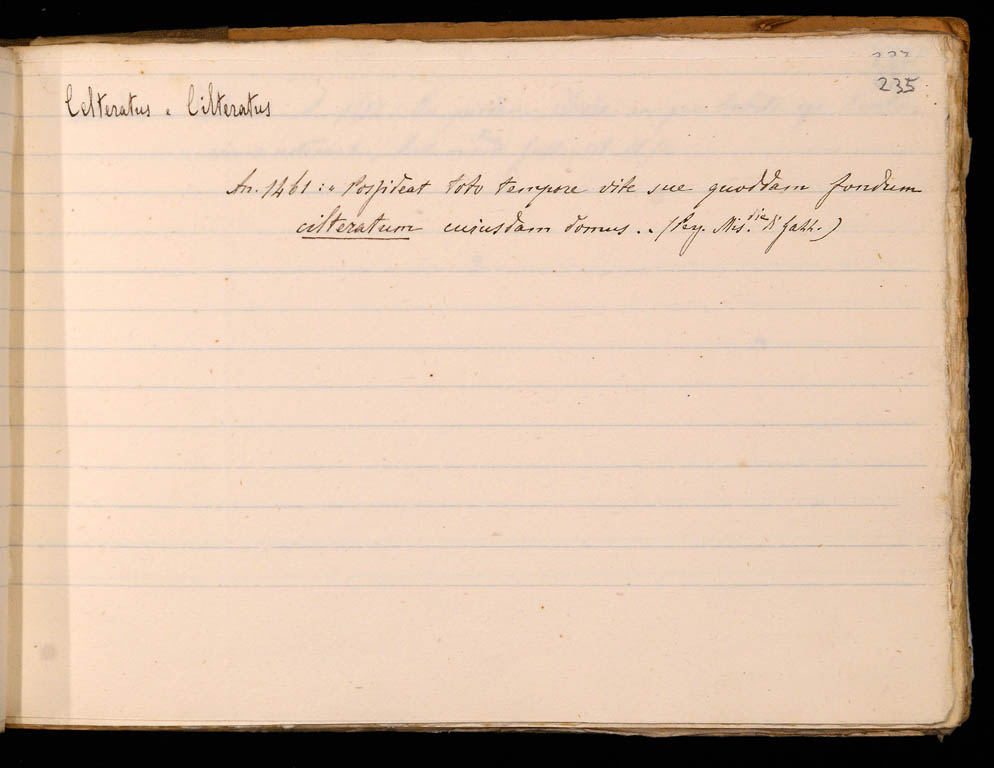 235
Celteratus = Cilteratus
An. 1461: " Possideat toto tempore vite sue quoddam fondum
cilteratum cuiusdam domus. " (Reg. Mis.